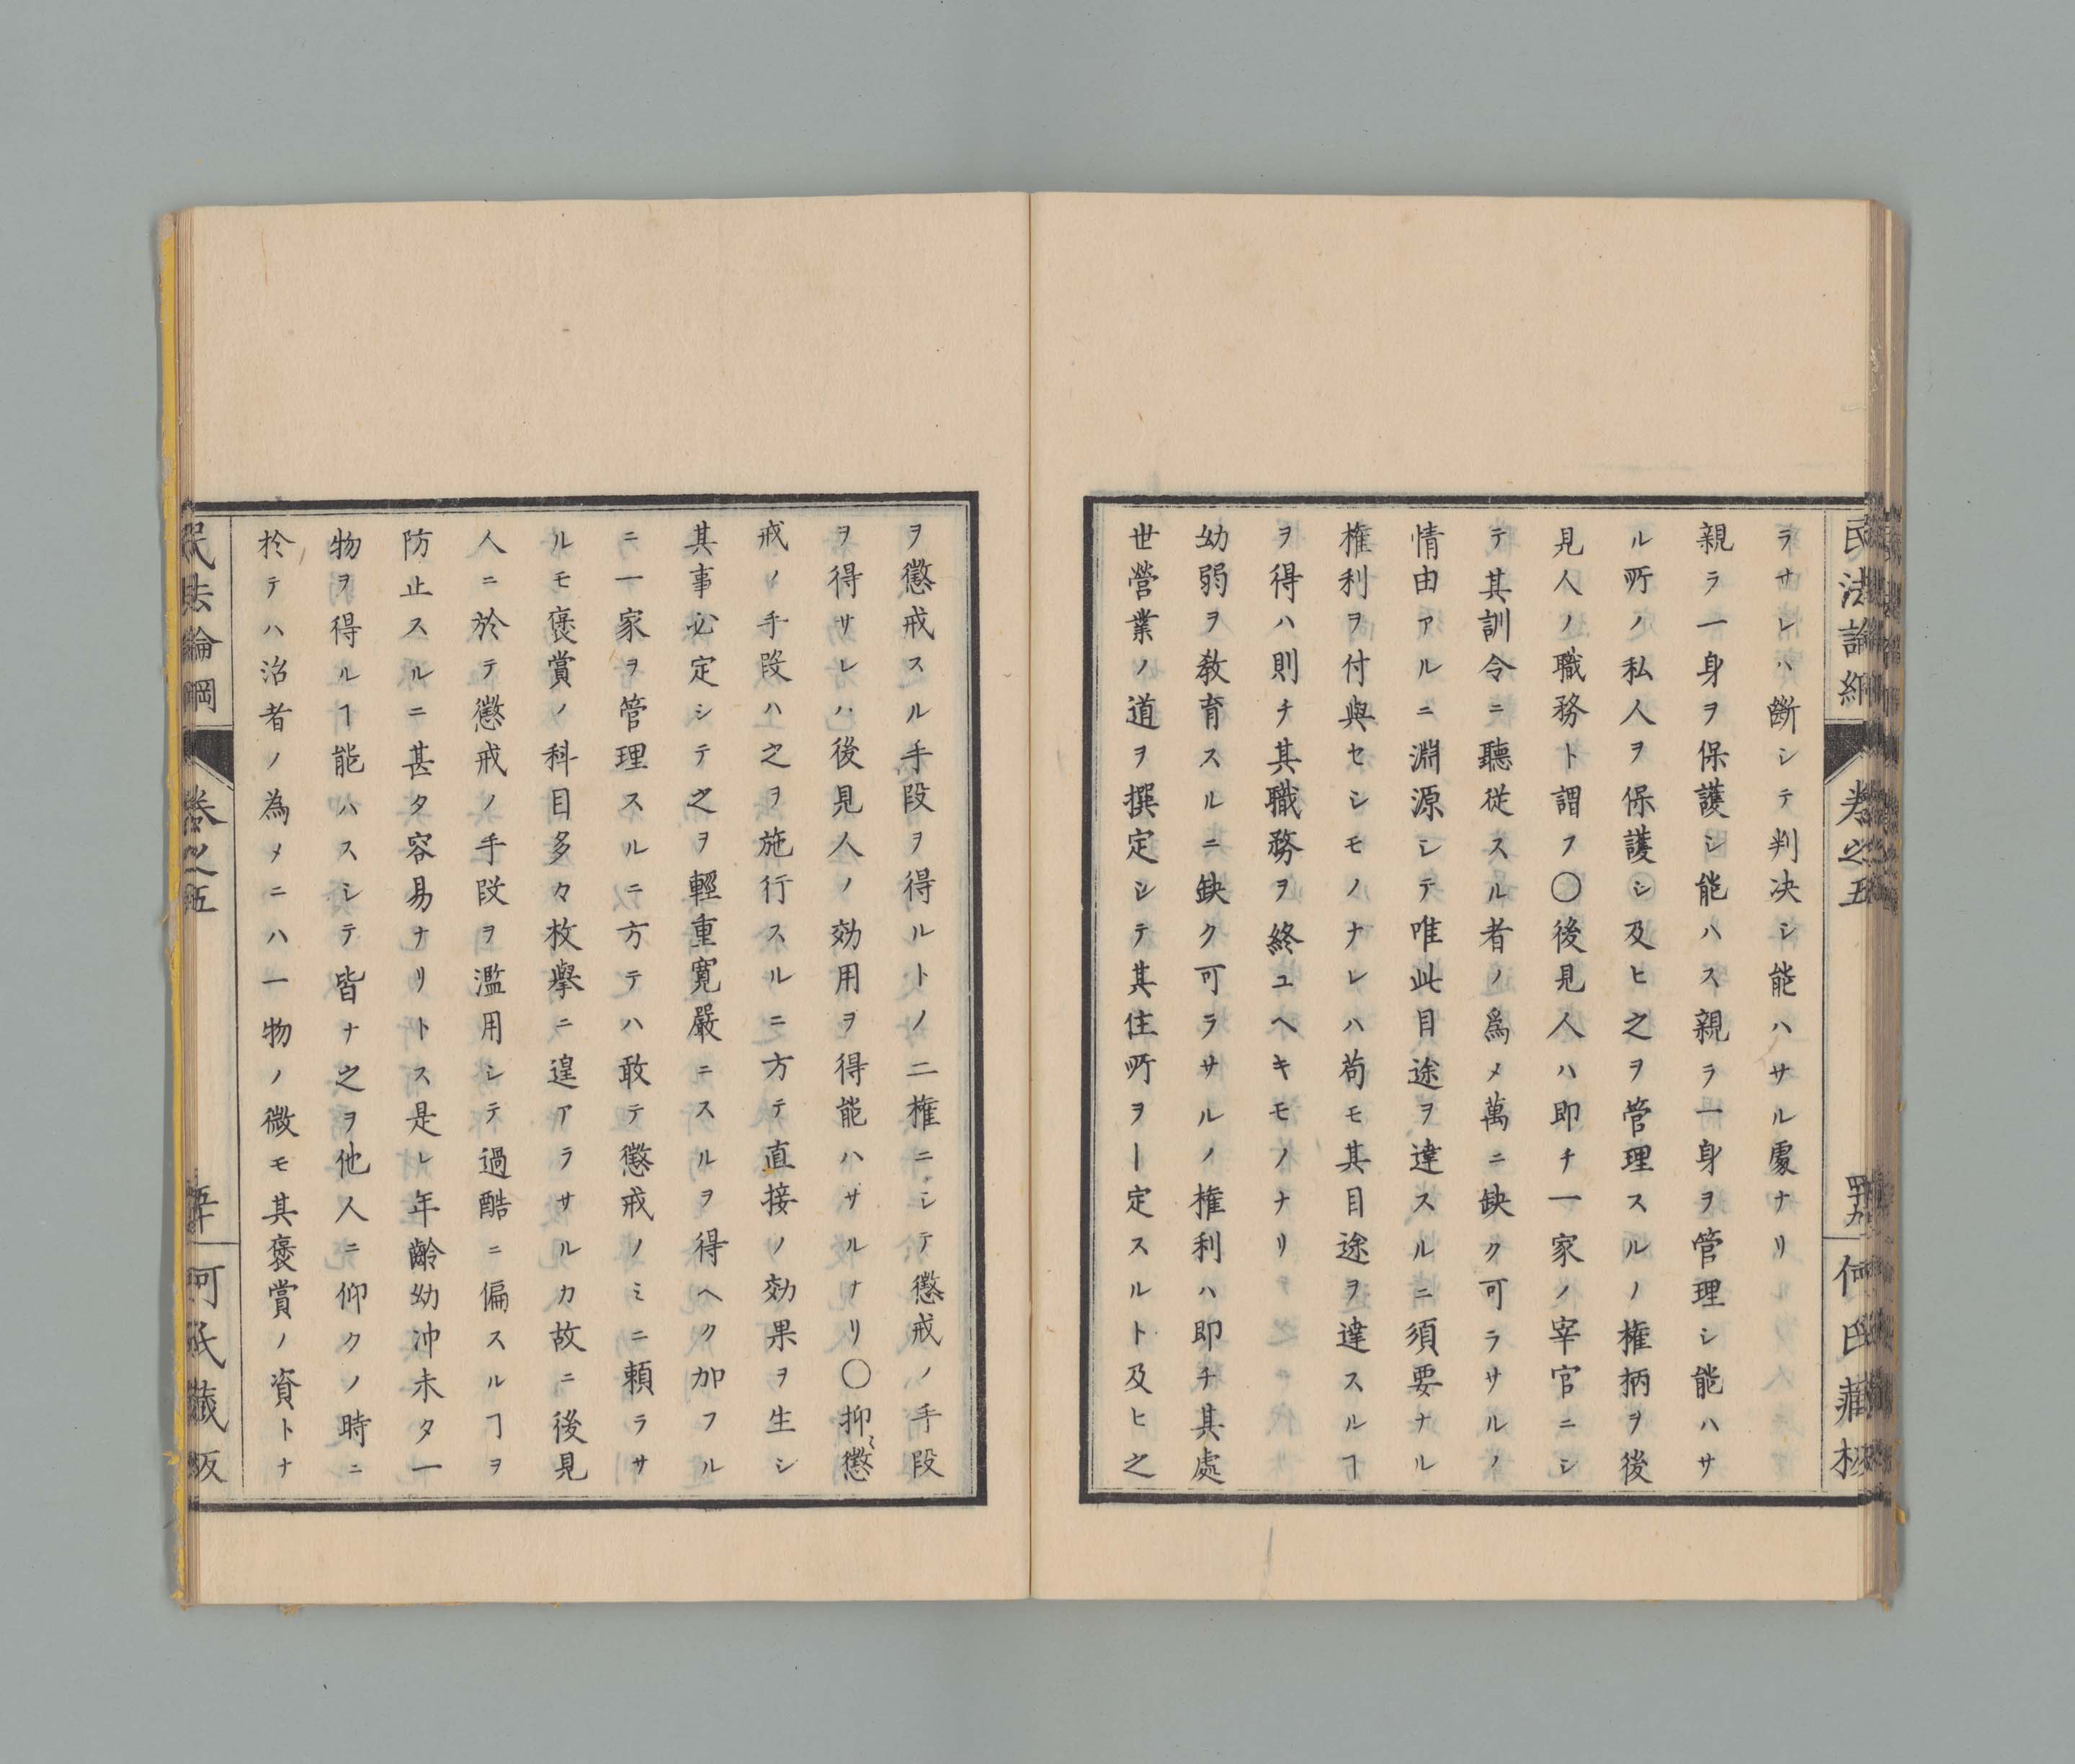 民法論綱 卷之五 四十九 何氏藏板
ラサレハ斷シテ判決シ能ハサル處ナリ
親ラ一身ヲ保護シ能ハス親ラ一身ヲ管理シ能ハサ
ル所ノ私人ヲ保護シ及ヒ之ヲ管理スルノ権柄ヲ後
見人ノ職務ト謂フ〇後見人ハ即チ一家ノ宰官ニシ
テ其訓令ニ聽從スル者ノ爲メ萬ニ缺ク可ラサルノ
情由アルニ淵源シテ唯此目途ヲ達スルニ須要ナル
権利ヲ付與セシモノナレハ苟モ其目途ヲ達スルヿ
ヲ得ハ則チ其職務ヲ終ユヘキモノナリ
幼弱ヲ敎育スルニ缺ク可ラサルノ権利ハ即チ其處
世營業ノ道ヲ撰定シテ其住所ヲ一定スルト及ヒ之
ヲ懲戒スル手段ヲ得ルトノ二権ニシテ懲戒ノ手段
ヲ得サレハ後見人ノ効用ヲ得能ハサルナリ〇抑ミ懲
戒ノ手段ハ之ヲ施行スルニ方テ直接ノ効果ヲ生シ
其事必定シテ之ヲ輕重寬嚴ニスルヲ得ヘク加フル
ニ一家ヲ管理スルニ方テハ敢テ懲戒ノミニ頼ラサ
ルモ褒賞ノ科目多々枚擧ニ遑アラサルカ故ニ後見
人ニ於テ懲戒ノ手段ヲ濫用シテ過酷ニ偏スルヿヲ
防止スルニ甚タ容易ナリトス是レ年齡幼冲未タ一
物ヲ得ルヿ能ハスシテ皆ナ之ヲ他人ニ仰クノ時ニ
於テハ治者ノ為メニハ一物ノ微モ其褒賞ノ資トナ
民法論綱 卷之五 五十 何氏藏版